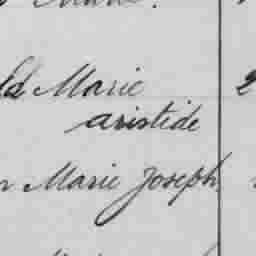 Marie
ld Marie 2
aristide
r Marie Joseph